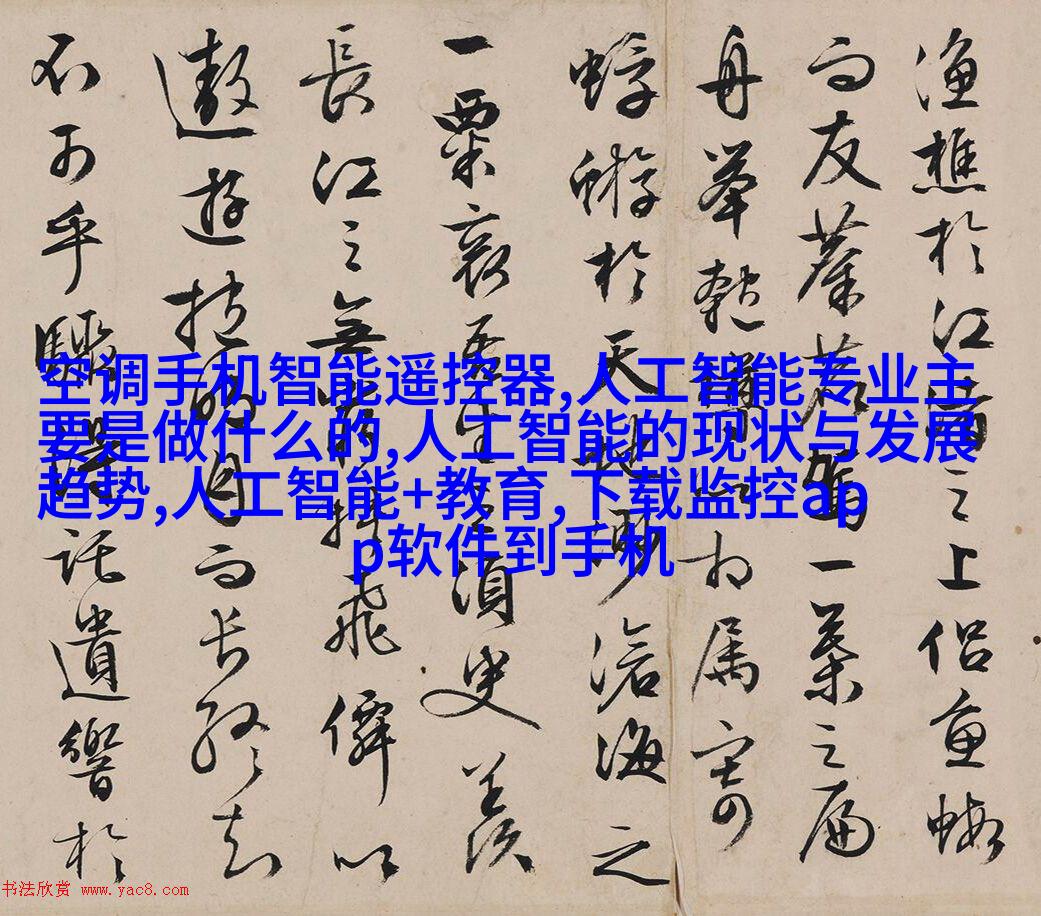 漁樵於江渚之上侶魚蝦
而友麋鹿駕一葉之扁
舟舉匏樽以相属寄
蜉蝣於天地渺滄海之
一粟哀吾生之須臾羨
長江之無窮挾飛僊以
遨遊抱明月而長終知
不可乎驟得託遺響於
空调手机智能遥控器,人工智能专业主
要是做什么的,人工智能的现状与发展
趋势,人工智能+教育,下载监控ap
p软件到手机
书法欣赏 www.yac8.com